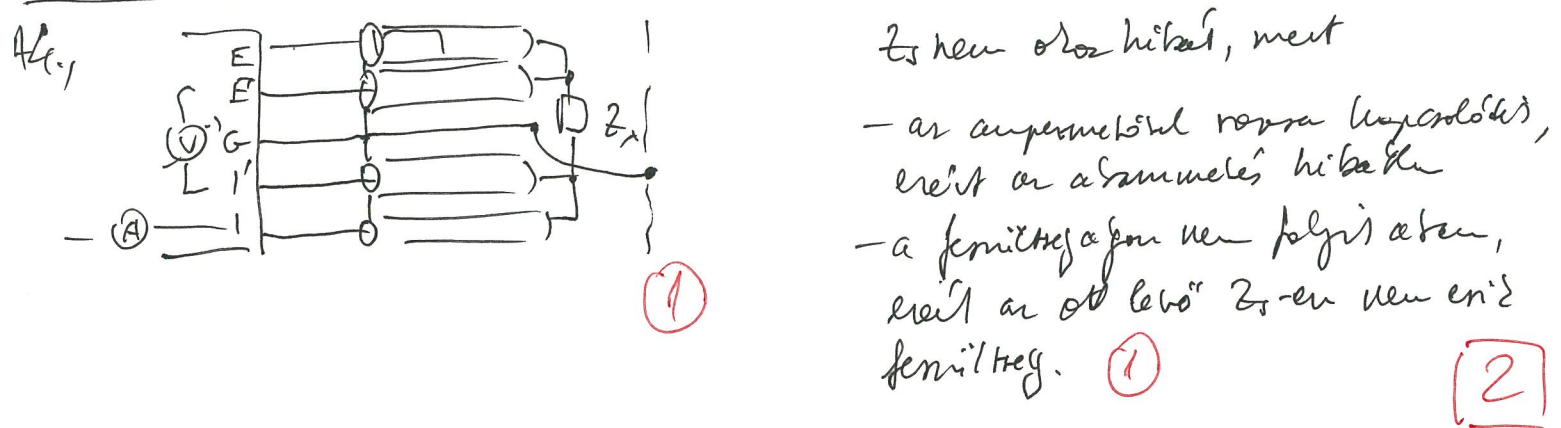 E
E'
V
G
I'
I
A
Zx
1
Zs nem okoz hibát, mert
- az ampermérővel sorba kapcsolódik,
ezért az árammérés hibátlan
- a feszültségágon nem folyik áram,
ezért az ott levő Zs-en nem esik
feszültség. 1
2